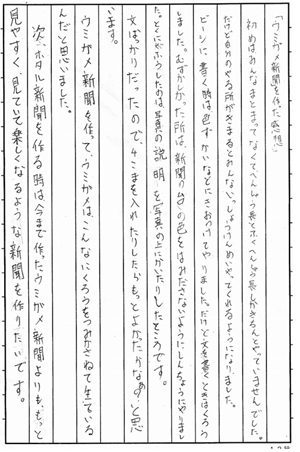 「ウミガメ新聞を作った感想」
初めはみんなまとまってなくてへんしゅう長とふくへんしゅう長しかきちんとやっていませんでした。
だけど自分のやる所がきまるとみんないっしょうけんめいやってくれるようになりました。
ビーンに書く時は色づかいなどにきおつけてやりました。だけど文を書くときはくろう
しました。むずかしかった所は、新聞の台の色をはみださないようにしんちょうにやりまし
た。とくにくふうしたのは、写真の説明を写真の上にかいたりしたところです。
文ばっかりだったので、4こまを入れたりしたらもっとよかったかなぁ。と思
います。
ウミガメ新聞を作って、ウミガメは、こんなにくろうをつみかさねて生きている
んだと思いました。
次、ホタル新聞を作る時は、今まで作ったウミガメ新聞よりも、もっと
見やすく、見ていて楽しくなるような新聞を作りたいです。